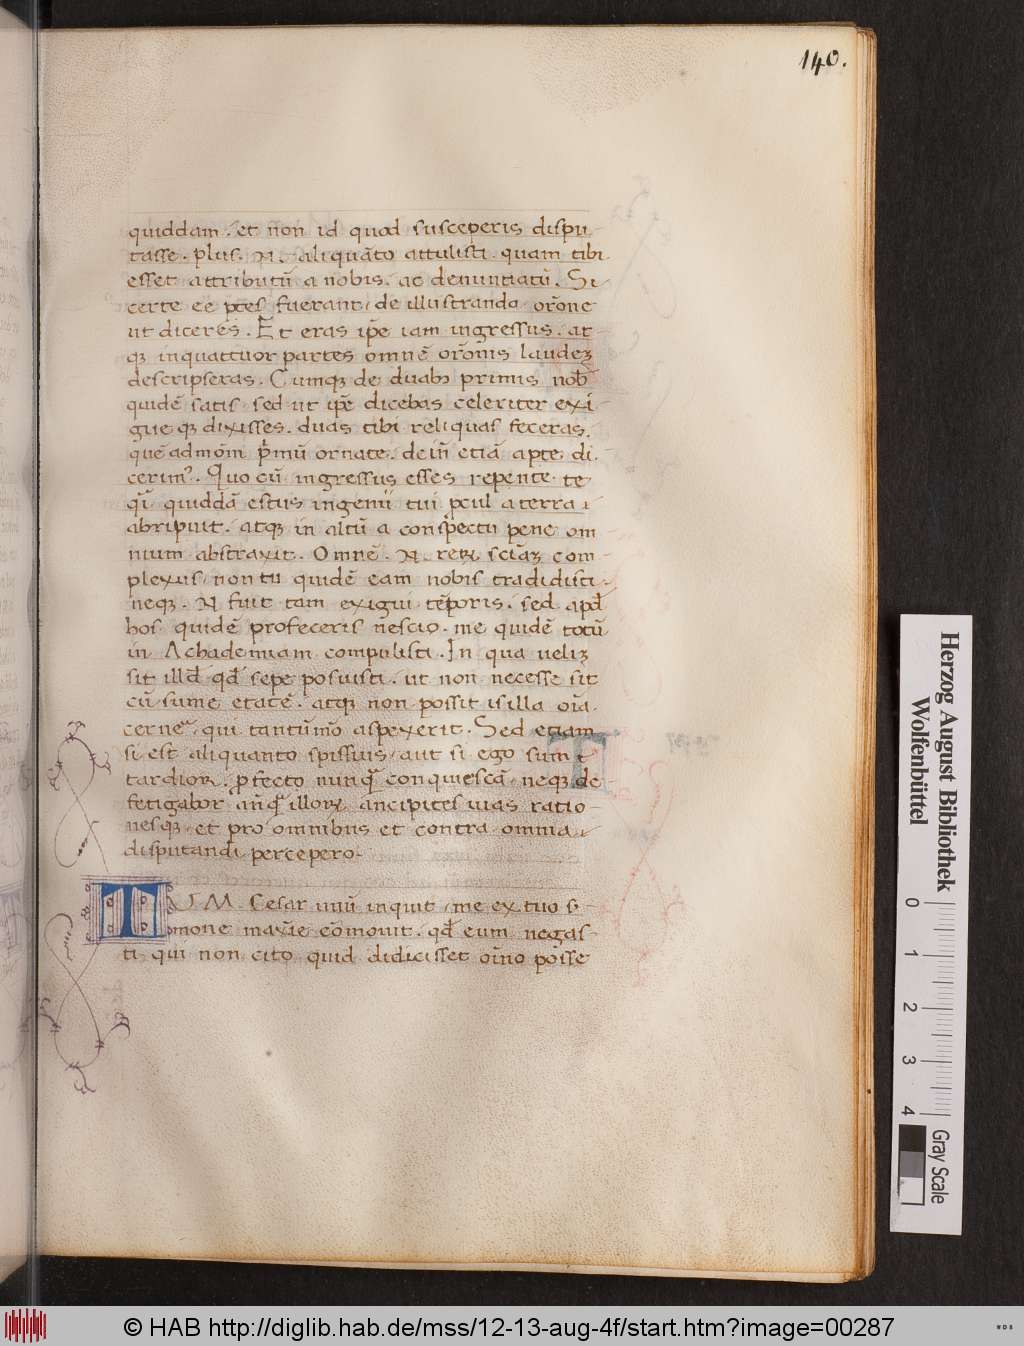 140.
quiddam. et non id quod susceperis dispu
tasse. plus. N. aliquāto attulisti. quam tibi
esset attributū a nobis. ac denuntiatū. Si
certe ee ptes fuerant, de illustranda orōne
ut diceres. Et eras ip̄e iam ingressus. at-
q; inquattuor partes omnē orōnis laudez
descripseras. Cumq; de duab; primis nob̄
quidē satis, sed ut ip̄e dicebas celeriter exi-
gue q; dixisses. duas tibi reliquas feceras.
quē admōm p̄mū ornate. dein̄ etiā apte di-
cerim9. Quo cū ingressus esses repente te
q̄i quiddā estus ingenii tui pcul a terra
abripuit. atq; in altū a conspectu pene om
nium abstraxit. Omnē. N. rerꝝ sciāz com-
plexus, non tu quidē eam nobis tradidisti.
neq;. N fuit tam exigui tēporis. sed apd̄
hos quidē profeceris nescio. me quidē totū
in Achademiam compulisti. In qua ueliz
sit illd̄ qd̄ sepe posuisti. ut non necesse sit
cū sume etatē. atq; non possit is illa oīa
cerne᷑, qui tantūmō aspexerit. Sed etiam
si est aliquanto spissius, aut si ego sum
tardior. p fecto nunq̄ conquiescā, neq; de-
fetigabor, an̄q̄ illorꝝ ancipites uias ratio-
nesq; et pro omnibus et contra omnia
disputandi percepero.
TUM. Cesar unū inquit, me ex tuo s-
mone maxīe cōmouit. qd̄ eum negas-
ti qui non cito quid didicisset oīno posse
Herzog August Bibliothek
Wolfenbüttel
0 1 2 3 4
Gray Scale
© HAB http://diglib.hab.de/mss/12-13-aug-4f/start.htm?image=00287